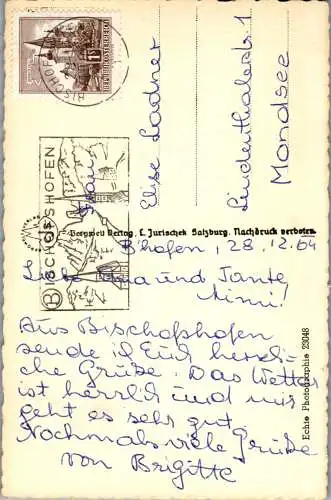 REPUBLIK ÖSTERREICH
BISCHOFSHOFEN
Frau
Elise Ladner
Lindenthalerstr. 1
Mondsee
Bergwelt Verlag, L. Jurischek Salzburg. Nachdruck verboten.
B'hofen, 28.12.64
Liebe Oma und Tante
Mimi!
Aus Bischofshofen
sende ich Euch herzli-
che Grüße. Das Wetter
ist herrlich und mir
geht es sehr gut
Nochmals viele Grüße
von Brigitte
Echte Photographie 23048